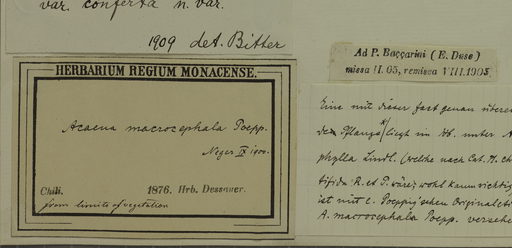 var. conferta n. var.
1909 det. Bitter
HERBARIUM REGIUM MONACENSE.
Acaena macrocephala Poepp.
Neger IX 1900.
Chili. 1876. Hrb. Dessauer.
from limits of vegetation
Ad P. Baccarini (E. Duse)
missa II. 05, remissa VIII.1905
Eine mit dieser fast genau überein
Pflanze liegt im Hb. unter A.
phylla Lindl. (welche nach Cat. H. Ch
tifida R. et P. wäre; wohl kaum richtig
ist mit e. Poeppig'schen Originaleti
A. macrocephala Poepp. versehe